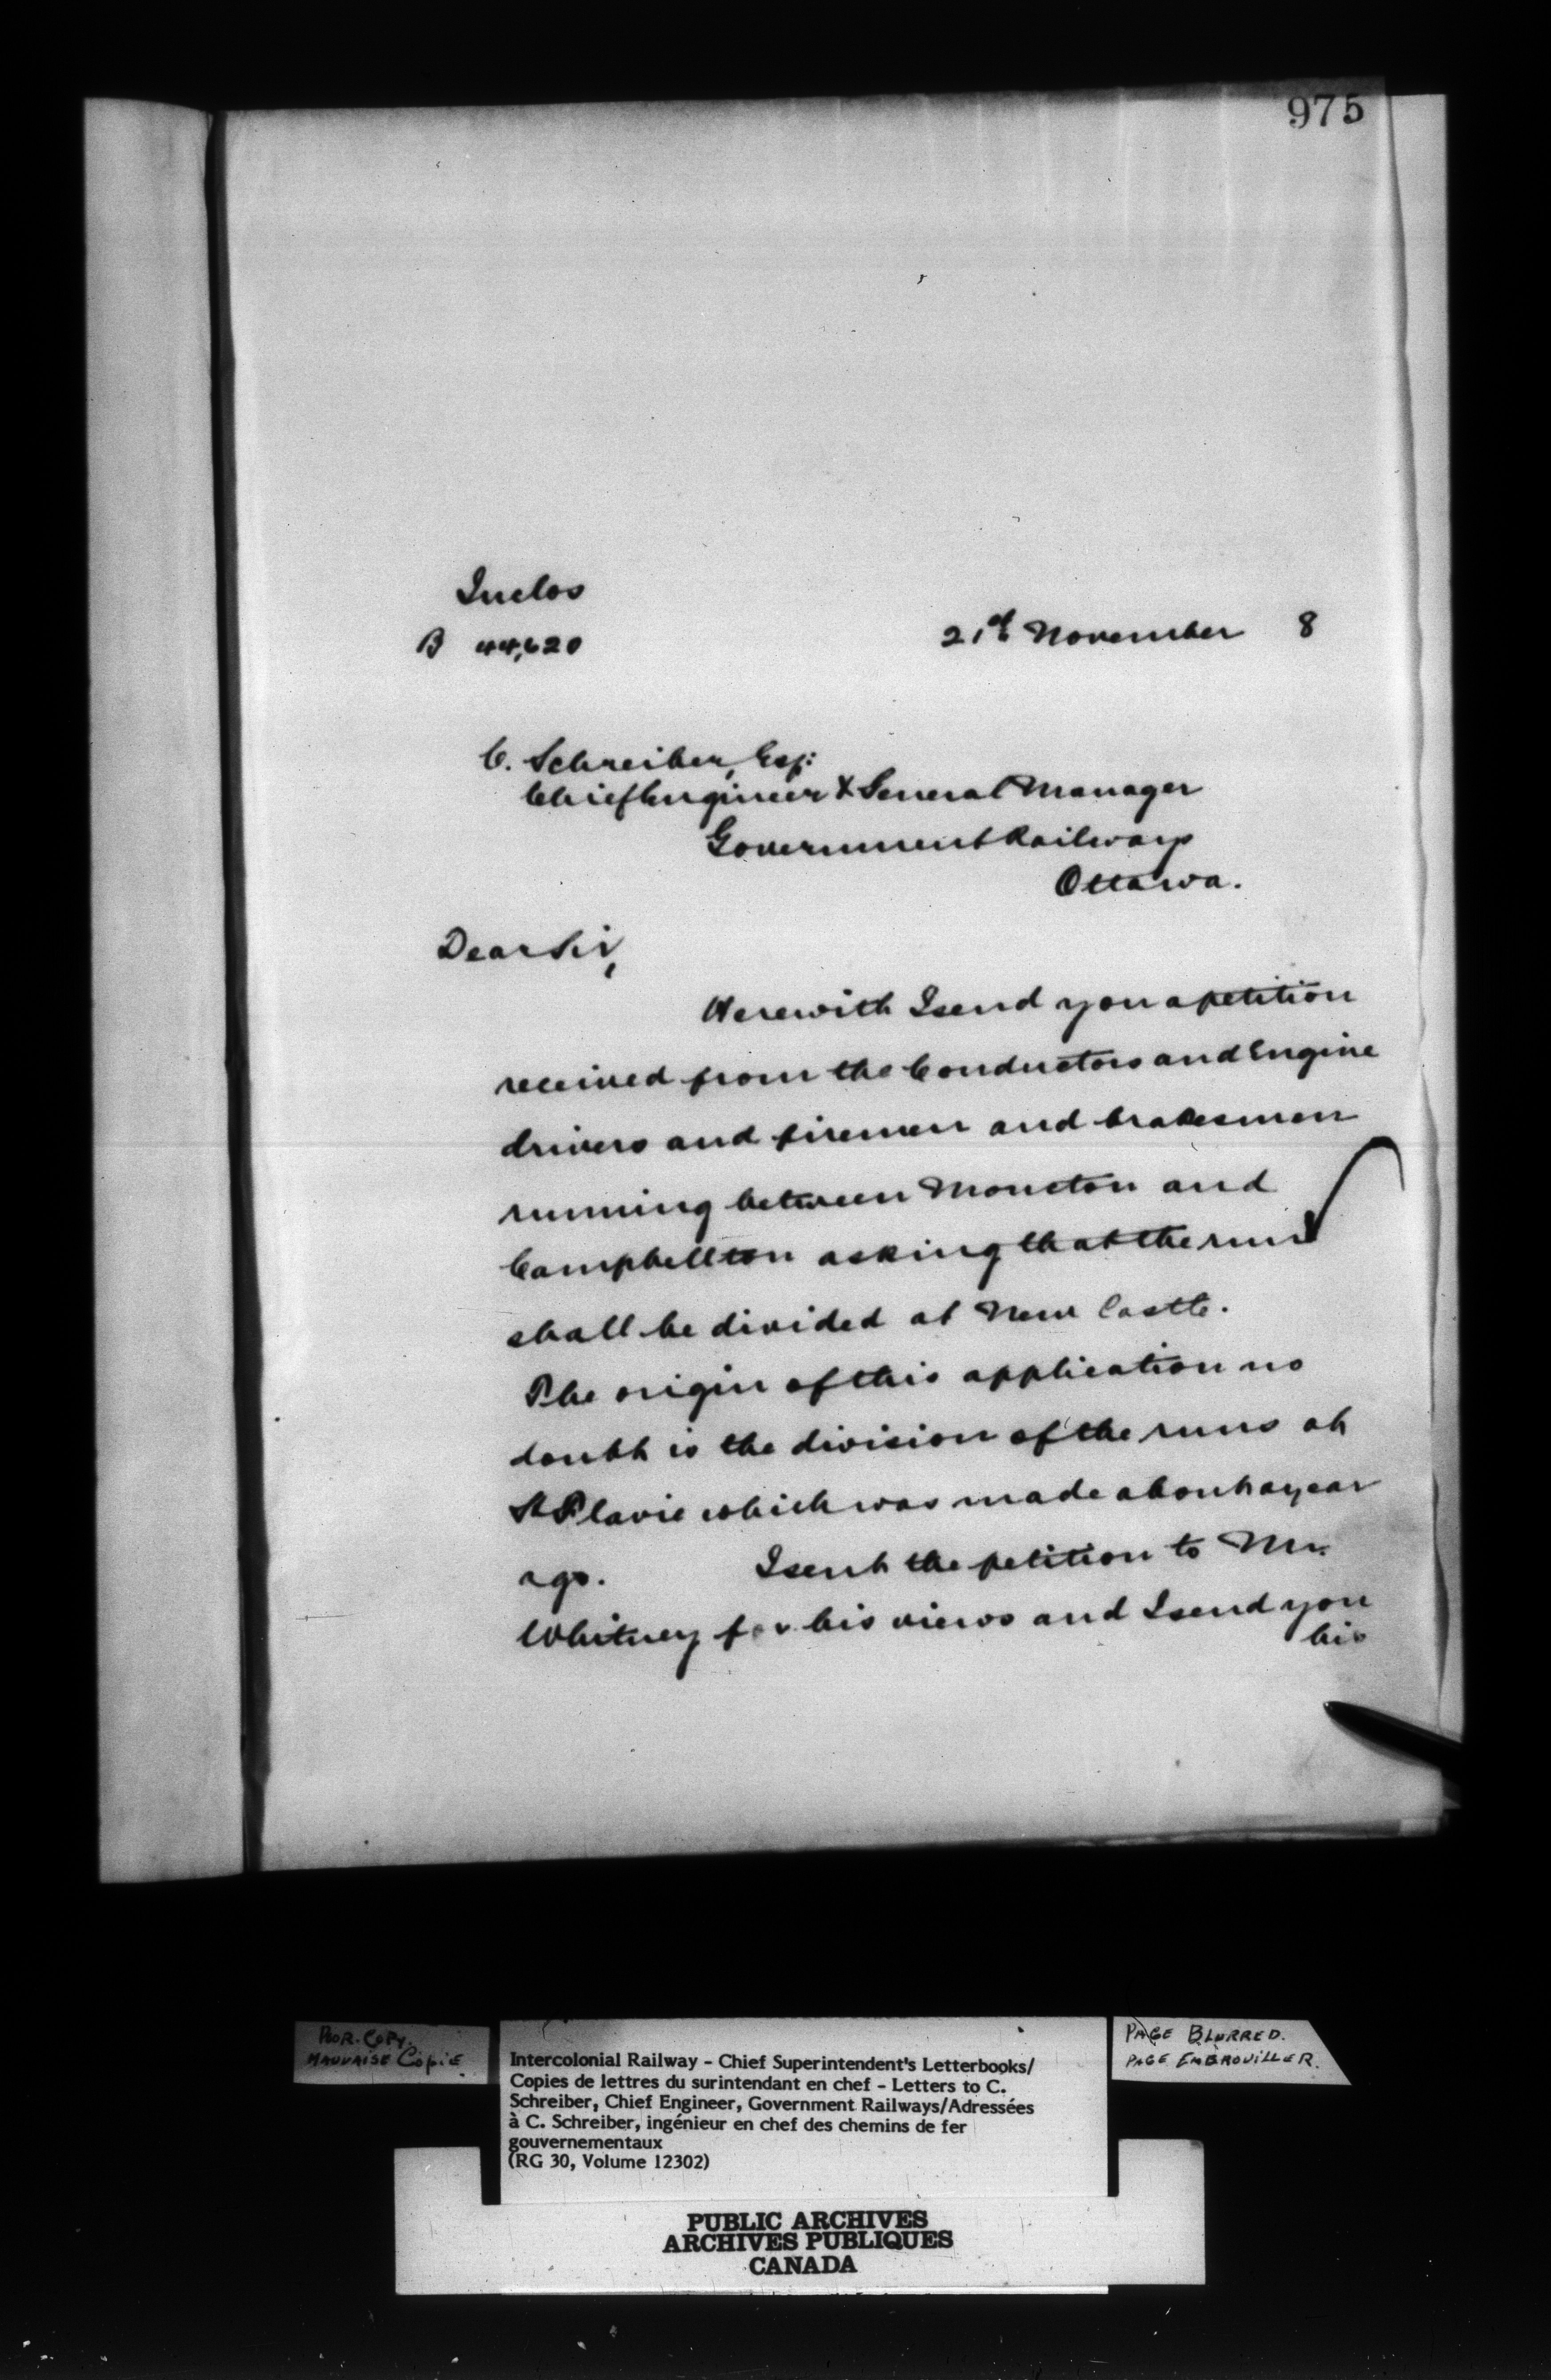 975
Inclos
B 44,620
21st November 8
C. Schreiber, Esq:
Chief Engineer & General Manager
Government Railways
Ottawa.
Dear Sir,
Herewith I send you a petition
received from the Conductors and Engine
drivers and firemen and brakesmen
running between Moncton and
Campbellton asking that the runs
shall be divided at New Castle.
The origin of this application no
doubt is the division of the runs at
St Flavie which was made about a year
ago. I sent the petition to Mr.
Whitney for his views and I send you
his
POOR. COPY.
MAUVAISE COPIE
Intercolonial Railway - Chief Superintendent's Letterbooks/
Copies de lettres du surintendant en chef - Letters to C.
Schreiber, Chief Engineer, Government Railways/Adressées
à C. Schreiber, ingénieur en chef des chemins de fer
gouvernementaux
(RG 30, Volume 12302)
PAGE BLURRED.
PAGE EMBROUILLER.
PUBLIC ARCHIVES
ARCHIVES PUBLIQUES
CANADA